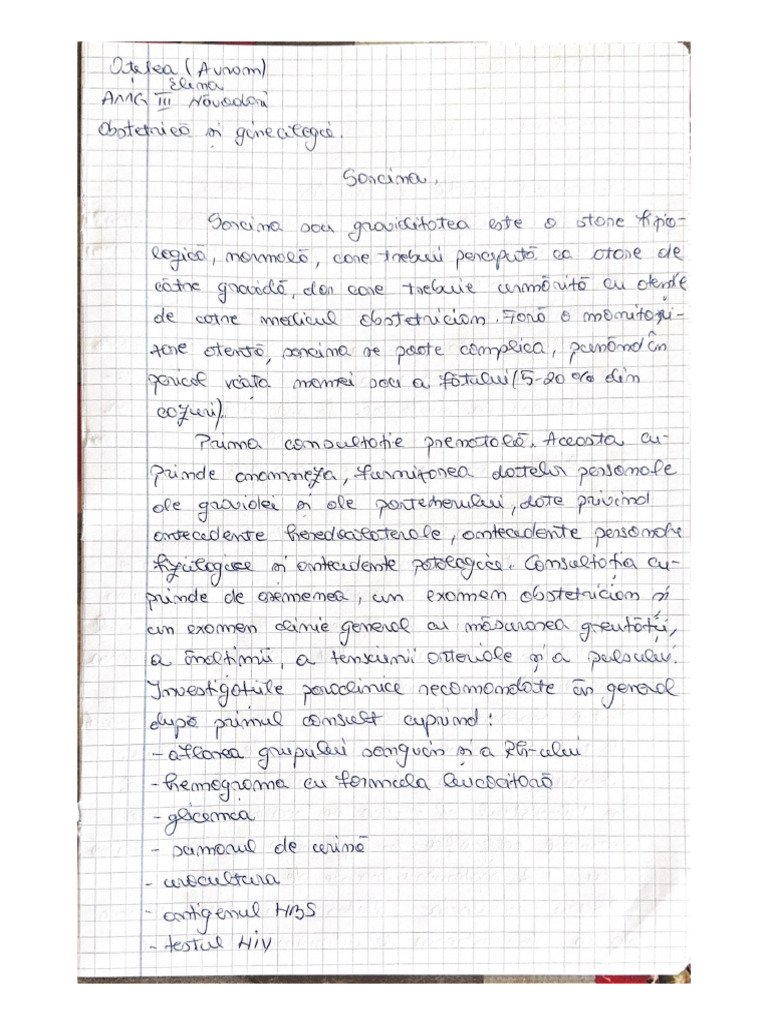 Oțelea (Avram)
Elena
AMG III Năvodari
Obstetrică și ginecologie.
Sarcina.
Sarcina sau graviditatea este o stare fizio-
logică, normală, care trebui percepută ca stare de
către gravidă, dar care trebuie urmărită cu atenție
de catre medicul obstetrician. Fară o monitori-
zare atentă, sarcina se poate complica, punând în
pericol viața mamei sau a fătului (5-20% din
cazuri).
Prima consultație prenatală. Aceasta cu-
prinde anamneza, furnizarea datelor personale
ale gravidei și ale partenerului, date privind
antecedente heredocolaterale, antecedente personale
fiziologice și antecedente patologice. Consultația cu-
prinde de asemenea, un examen obstetrician și
un examen clinic general cu măsurarea greutății,
a înălțimii, a tensiunii arteriale și a pulsului.
Investigațiile paraclinice recomandate în general
după primul consult cuprind:
- aflarea grupului sanguin și a Rh-ului
- hemograma cu formula leucocitară
- glicemia
- sumarul de urină
- urocultura
- antigenul HBS
- testul HIV